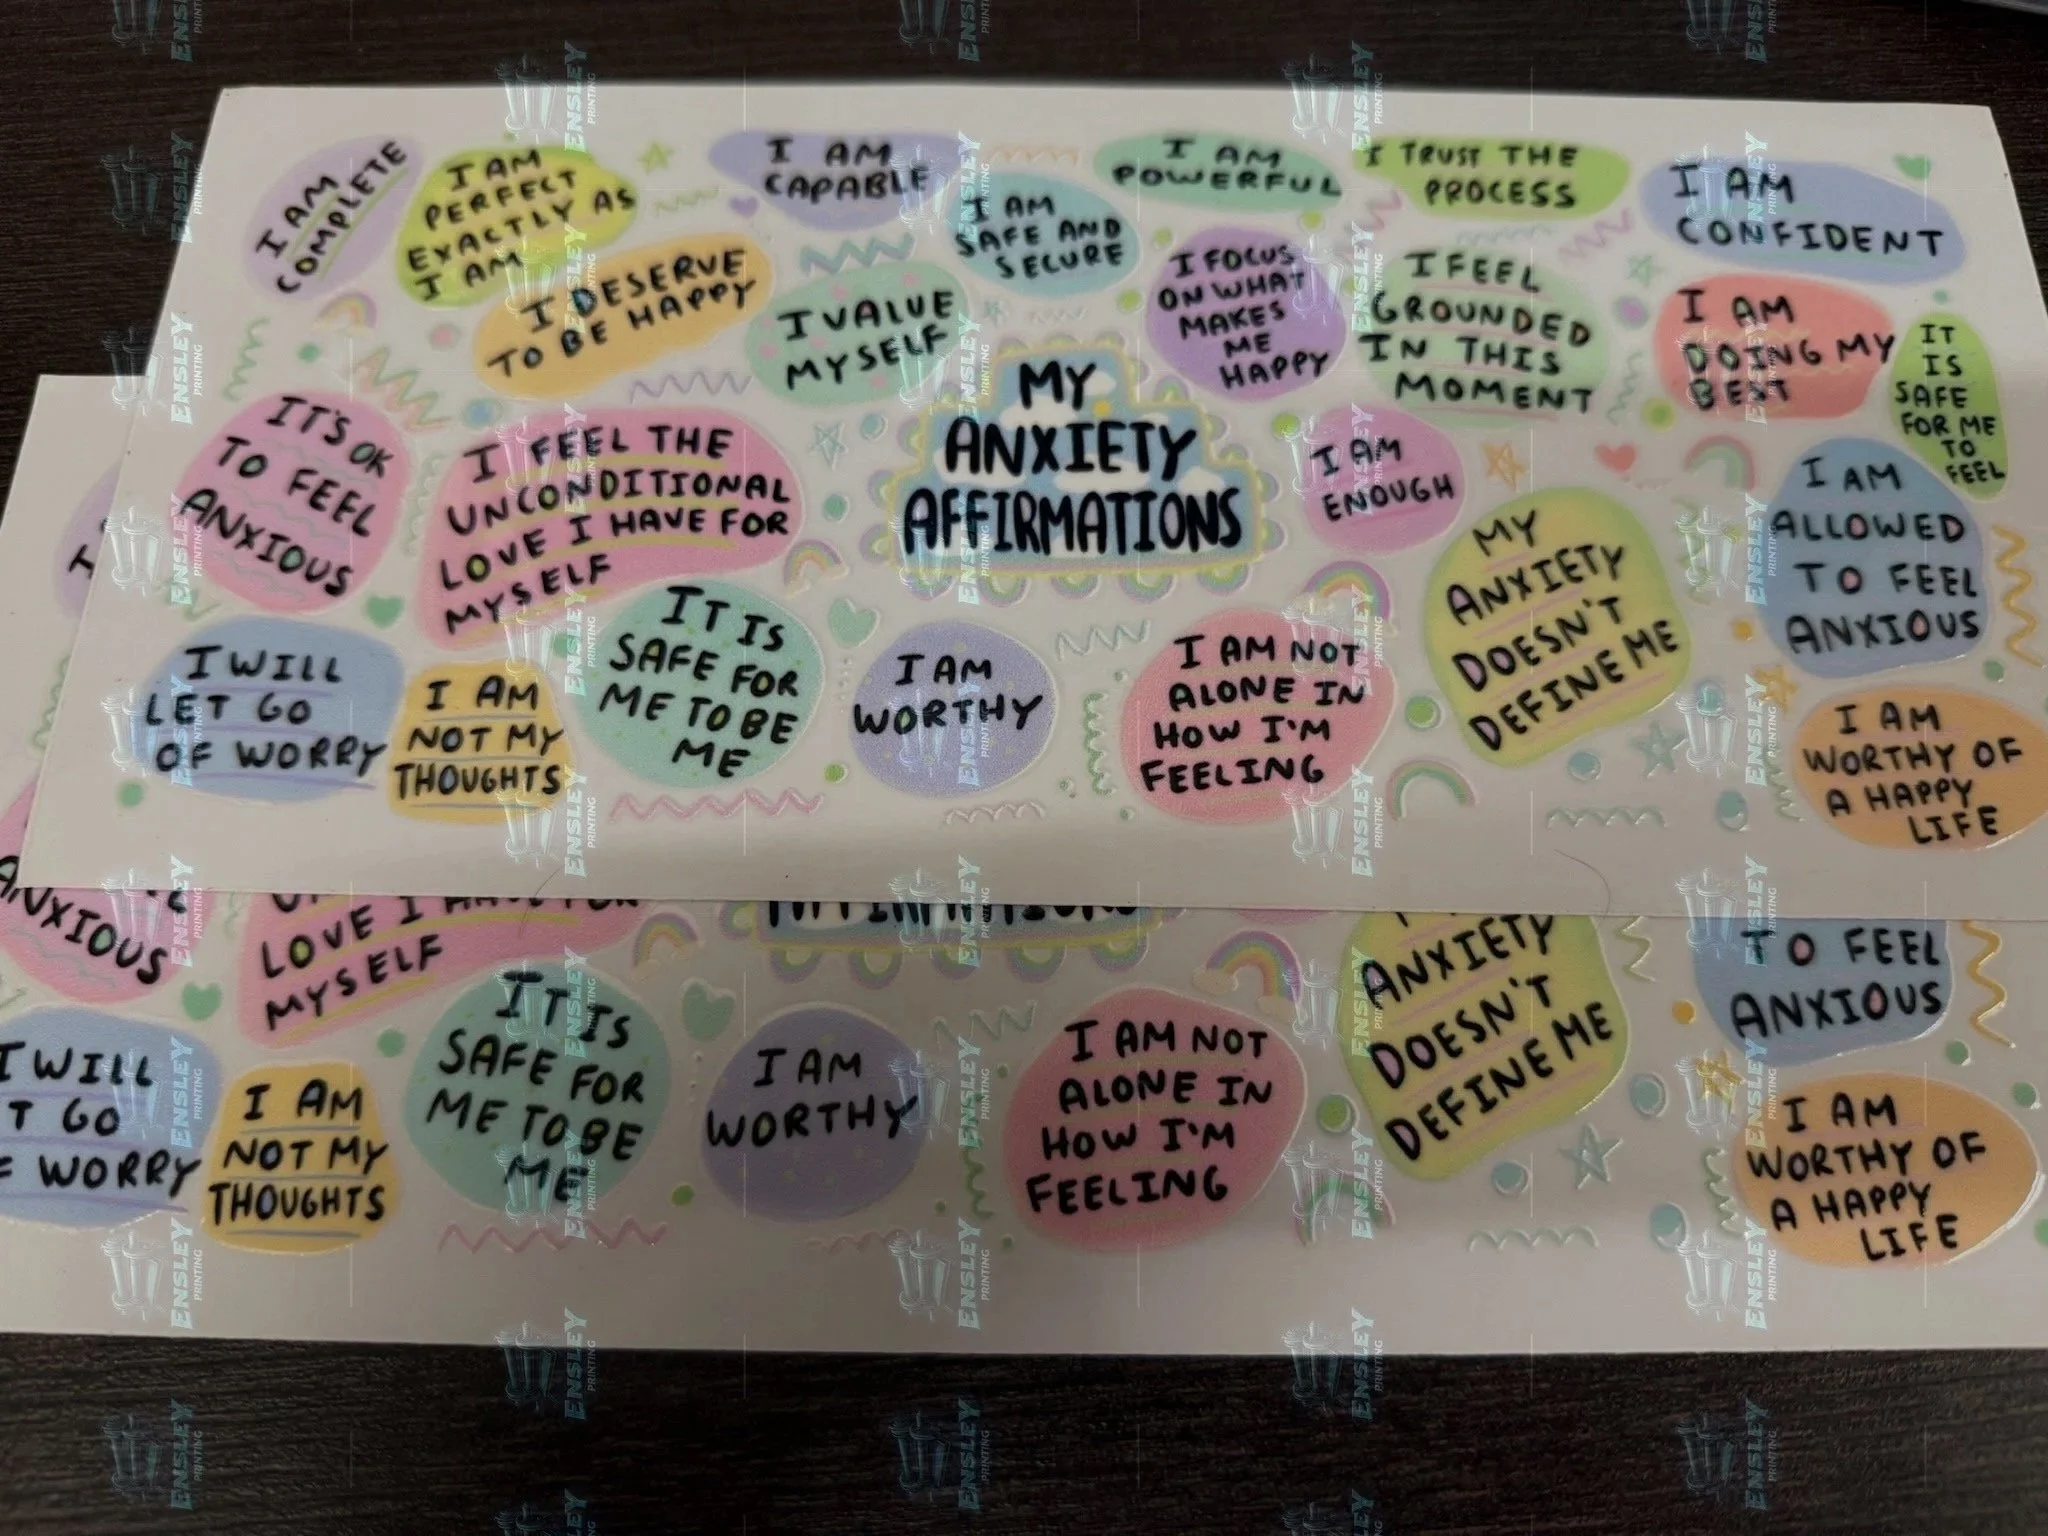 I AM
COMPLETE
I AM
PERFECT
EXACTLY AS
I AM
I AM
CAPABLE
I AM
SAFE AND
SECURE
I AM
POWERFUL
I TRUST THE
PROCESS
I AM
CONFIDENT
I DESERVE
TO BE HAPPY
I VALUE
MYSELF
I FOCUS
ON WHAT
MAKES
ME
HAPPY
I FEEL
GROUNDED
IN THIS
MOMENT
I AM
DOING MY
BEST
IT
IS
SAFE
FOR ME
TO
FEEL
IT'S OK
TO FEEL
ANXIOUS
I FEEL THE
UNCONDITIONAL
LOVE I HAVE FOR
MYSELF
MY
ANXIETY
AFFIRMATIONS
I AM
ENOUGH
MY
ANXIETY
DOESN'T
DEFINE ME
I AM
ALLOWED
TO FEEL
ANXIOUS
I WILL
LET GO
OF WORRY
I AM
NOT MY
THOUGHTS
IT IS
SAFE FOR
ME TO BE
ME
I AM
WORTHY
I AM NOT
ALONE IN
HOW I'M
FEELING
I AM
WORTHY OF
A HAPPY
LIFE
ANXIOUS
LOVE I HAVE FOR
MYSELF
AFFIRMATIONS
ANXIETY
DOESN'T
DEFINE ME
TO FEEL
ANXIOUS
I WILL
T GO
F WORRY
I AM
NOT MY
THOUGHTS
IT IS
SAFE FOR
ME TO BE
ME
I AM
WORTHY
I AM NOT
ALONE IN
HOW I'M
FEELING
I AM
WORTHY OF
A HAPPY
LIFE
ENSLEY
PRINTING